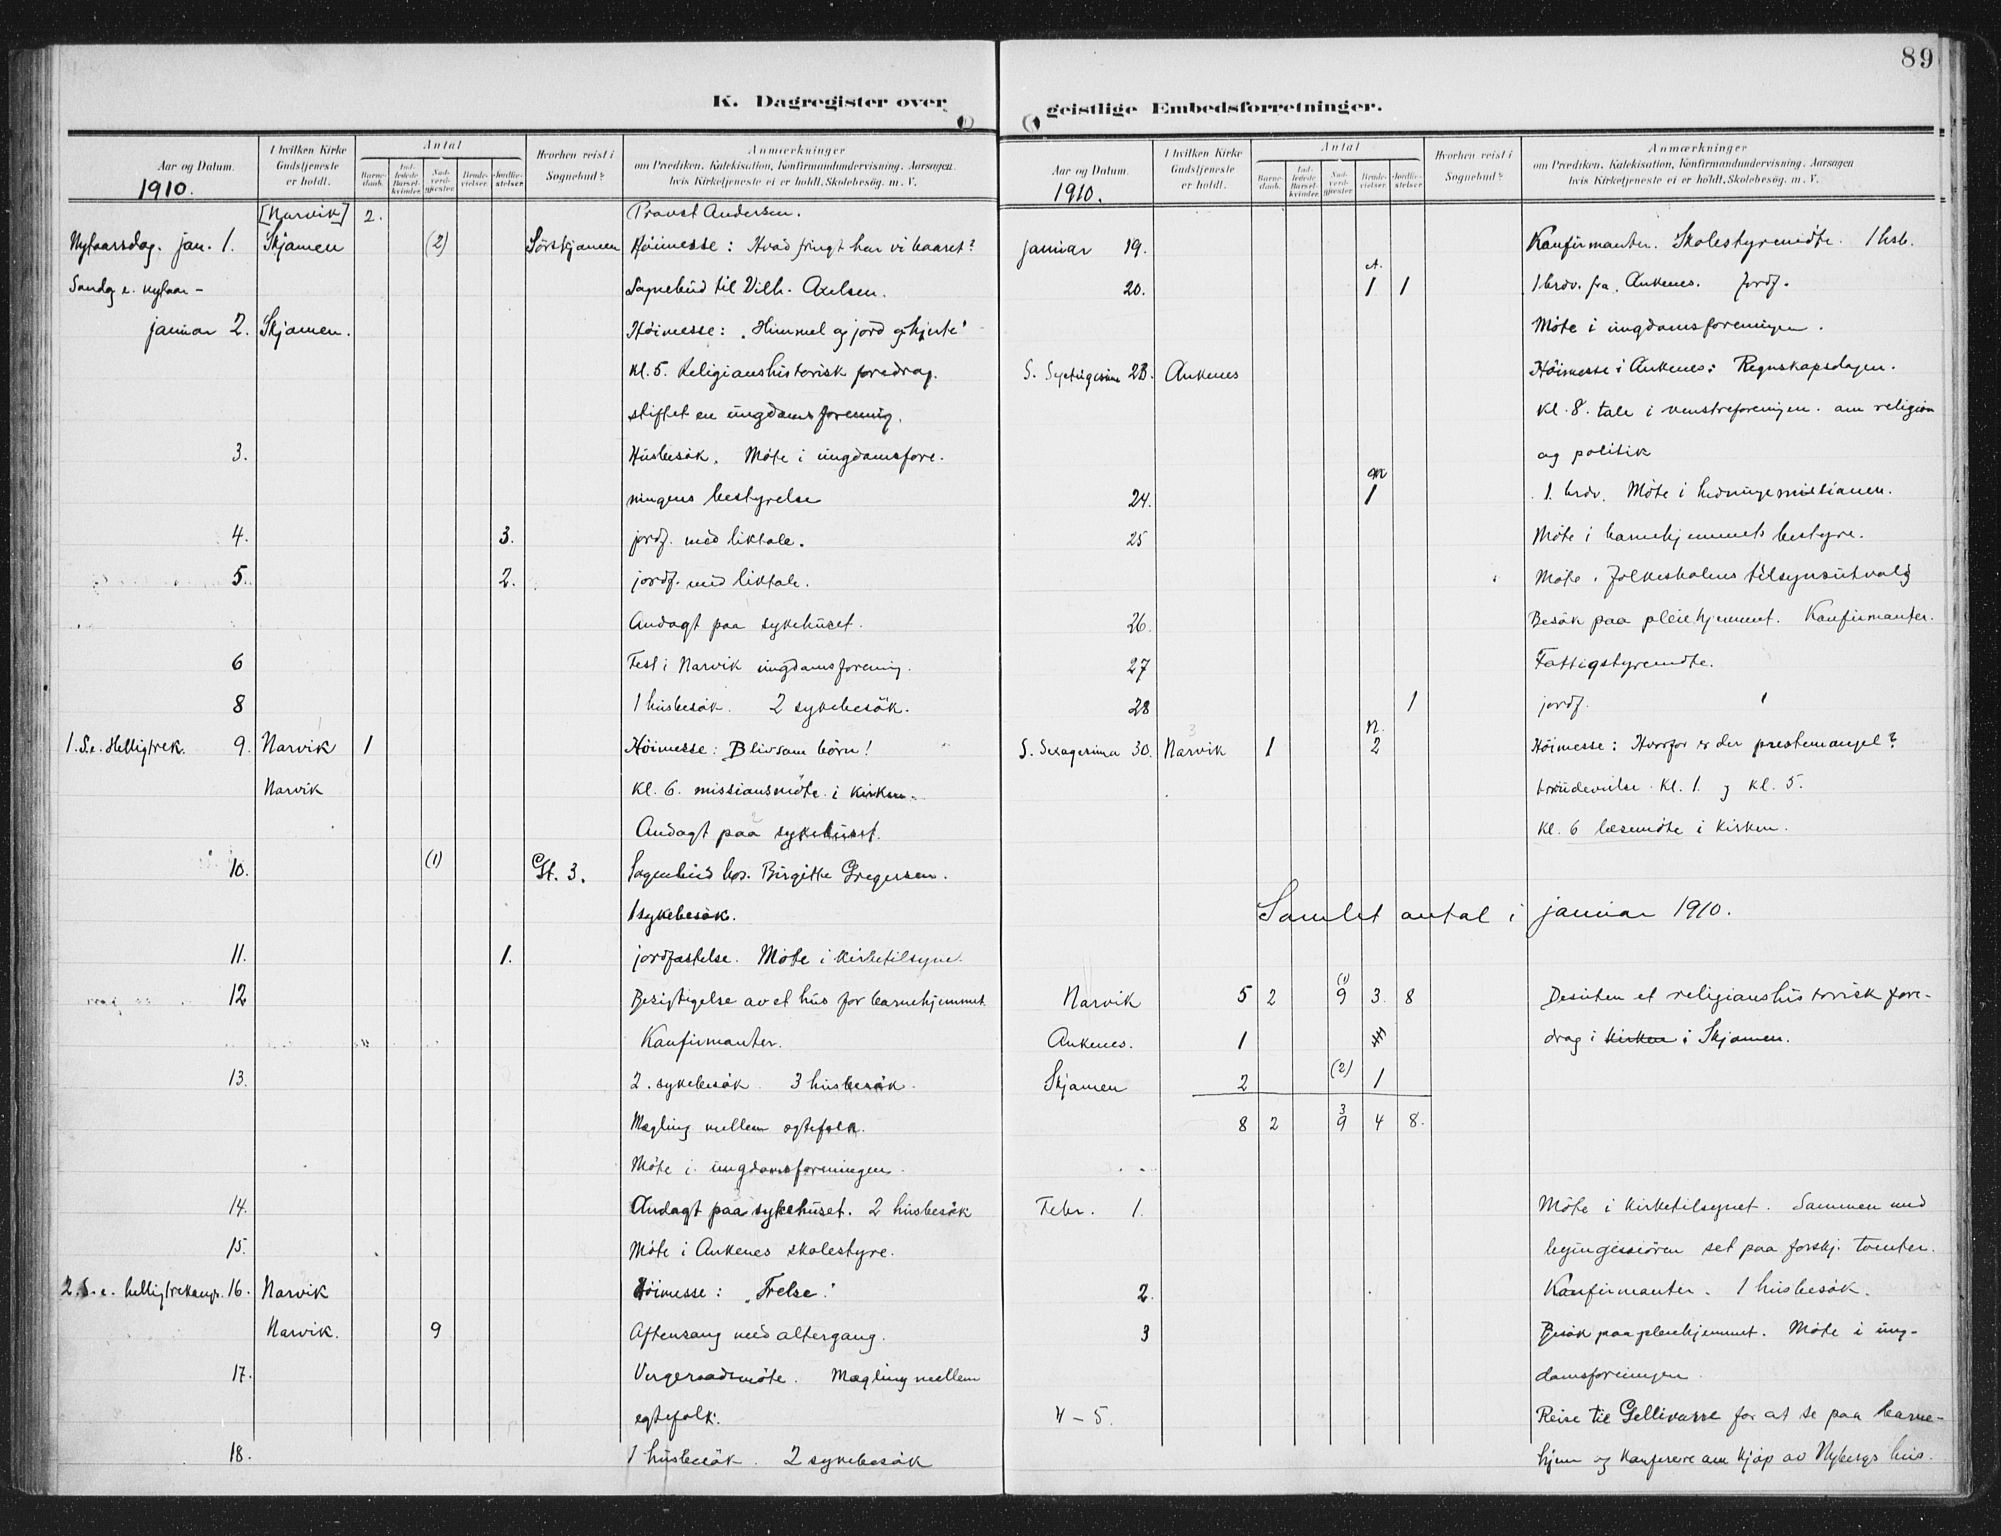 89
K. Dagregister over
Aar og Datum.
1910.
I hvilken Kirke Gudstjeneste er holdt.
Antal
Barne-daab.
Ind-ledede Barsel-kvinder.
Nad-verd-gjester.
Brude-vielser.
Jordfæ-stelser.
Hvorhen reist i Sognebud?
Anmærkninger
om Prædiken, Katekisation, Konfirmandundervisning, Aarsagen,
hvis Kirketjeneste ei er holdt, Skolebesøg, m. V.
[Narvik] 2. Provst Andersen.
Nytaarsdag. jan. 1. Skjomen (2) Sörskjomen Höimesse: Hvad frugt har vi baaret?
Sondag e. nytaar- Sognebud til Vilh. Axelsen.
januar 2. Skjomen. Höimesse: "Himmel og jord og hjerte"
Kl. 5. Religionshistorisk foredrag.
stiftet en ungdomsforening.
3. Husbesök. Möte i ungdomsfore-
ningens bestyrelse
4. 3. jordf. med liktale.
5. 2. jordf. med liktale.
Andagt paa sykehuset.
6 Fest i Narvik ungdomsforening.
8 1 husbesök. 2 sykebesök.
1. S. e. Helligtrek. 9. Narvik 1 Höimesse: Bliv som börn!
Narvik Kl. 6. missionsmöte i kirken.
Andagt paa sykehuset.
10. (1) Gt. 3. Sognebud hos Birgitte Gregersen.
1 sykebesök.
11. 1. jordfæstelse. Möte i kirketilsyne.
12 Besigtigelse av et hus for barnehjemmet.
Konfirmanter.
13. 2. sykebesök. 3 husbesök.
Mægling mellem egtefolk.
Möte i ungdomsforeningen.
14. Andagt paa sykehuset. 2 husbesök
15. Möte i Ankenes skolestyre.
2. S. e. helligtrekongr. 16. Narvik Höimesse: "Frelse".
Narvik. 9 Aftensang med altergang.
17. Vergeraadsmöte. Mægling mellem
egtefolk.
18. 1 husbesök. 2 sykebesök
geistlige Embedsforretninger.
Aar og Datum.
1910.
I hvilken Kirke Gudstjeneste er holdt.
Antal
Barne-daab.
Ind-ledede Barsel-kvinder.
Nad-verd-gjester.
Brude-vielser.
Jordfæ-stelser.
Hvorhen reist i Sognebud?
Anmærkninger
om Prædiken, Katekisation, Konfirmandundervisning, Aarsagen,
hvis Kirketjeneste ei er holdt, Skolebesøg, m. V.
januar 19. Konfirmanter. Skolestyremöte. 1 hsb.
20. A. 1 1 1 brdv. fra Ankenes. Jordf.
Möte i ungdomsforeningen.
S. Septuagesima 23. Ankenes Höimesse i Ankenes: Regnskapsdagen.
Kl. 8. tale i venstreforeningen. om religion
og politik
24. 1 1. brdv. Möte i hedningemissionen.
25 Möte i barnehjemmets bestyre.
Möte i folkeskolens tilsynsutvalg
26. Besök paa pleiehjemmet. Konfirmanter.
27 Fattigstyremöte.
28 1 jordf. 1
S. Sexagesima 30. Narvik 1 N. 2 Höimesse: Hvorfor er der prestemangel?
brudevielse kl. 1. og kl. 5.
Kl. 6 læsemöte i kirken.
Samlet antal i januar 1910.
Narvik 5 2 (1) 9 3. 8 Desuten et religionshistorisk fore-
Ankenes. 1 drag i kirken i Skjomen.
Skjomen 2 (2) 1
8 2 3 9 4 8.
Febr. 1. Möte i kirketilsynet. Sammen med
byingeniören set paa forskj. tomter.
2. Konfirmanter. 1 husbesök.
3 Besök paa pleiehjemmet. Möte i ung-
domsforeningen.
4 - 5. Reise til Gellivarre for at se paa barne-
hjem og konferere om kjöp av Nybergs hus.